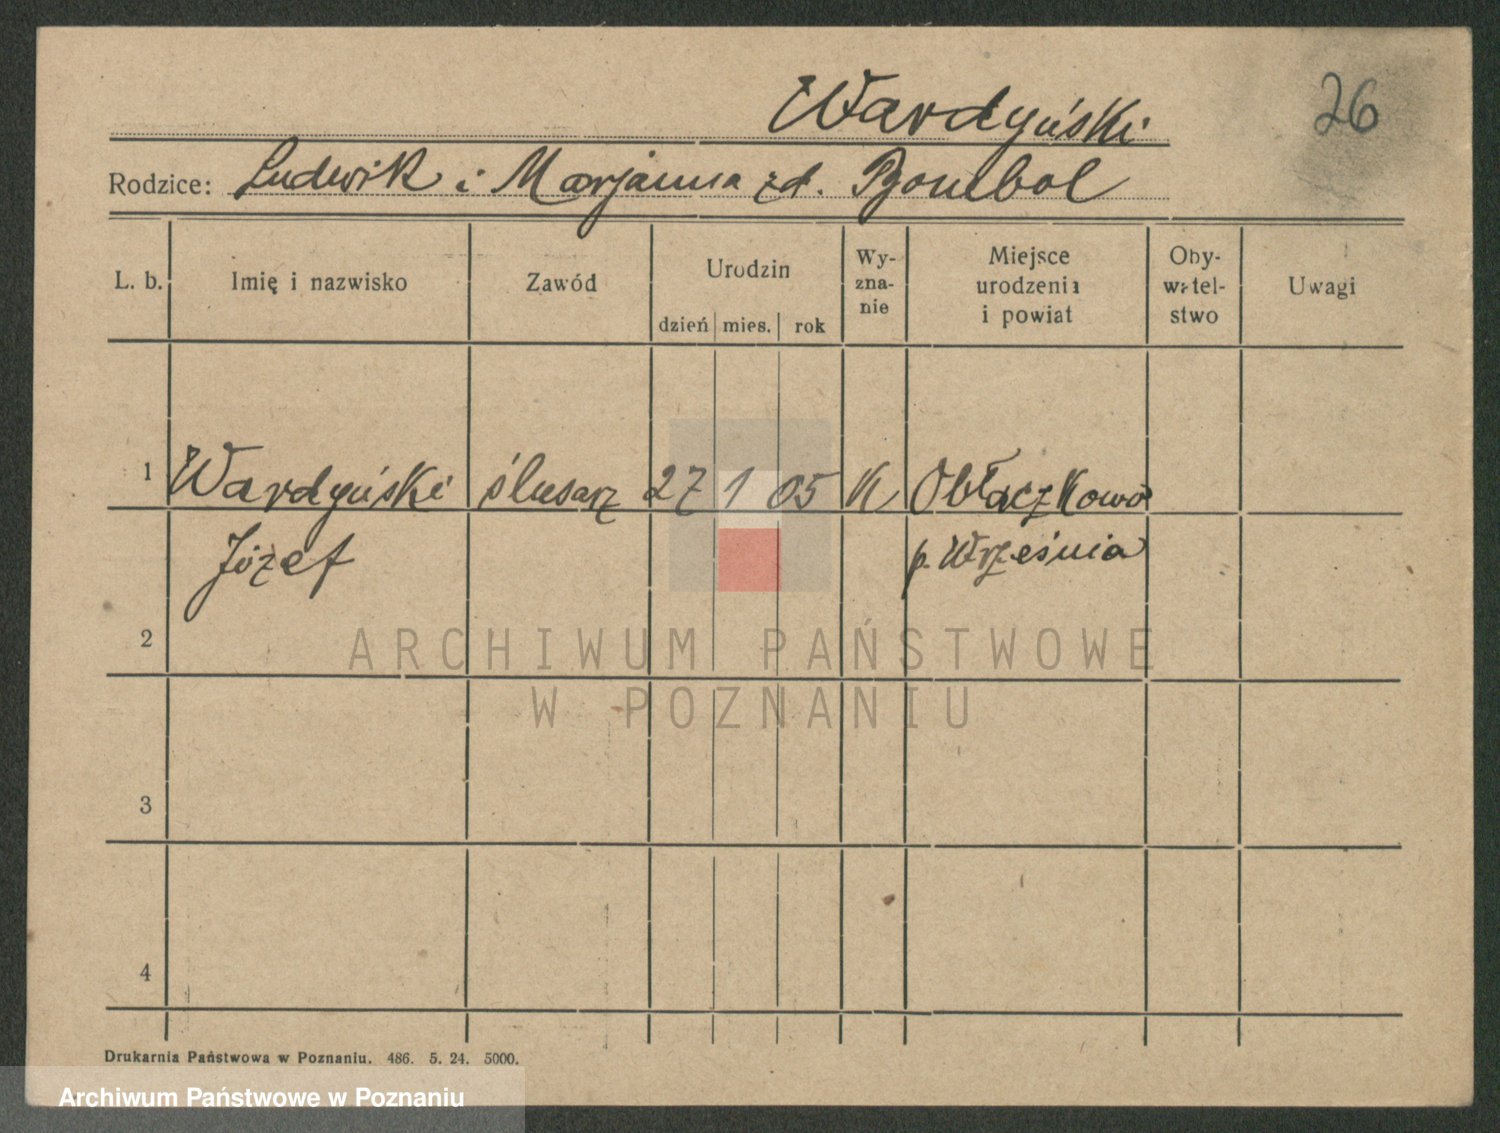 Wardyński 26
Rodzice: Ludwik i Marjanna zd.
L. b. Imię i nazwisko Zawód Urodzin dzień mies. rok Wy-zna-nie Miejsce urodzenia i powiat Oby-watel-stwo Uwagi
1 Wardyński ślusarz 27 1 05 K Obłaczkowo
Józef p. Września
2
ARCHIWUM PAŃSTWOWE
W POZNANIU
3
4
Drukarnia Państwowa w Poznaniu. 486. 5. 24. 5000.
Archiwum Państwowe w Poznaniu